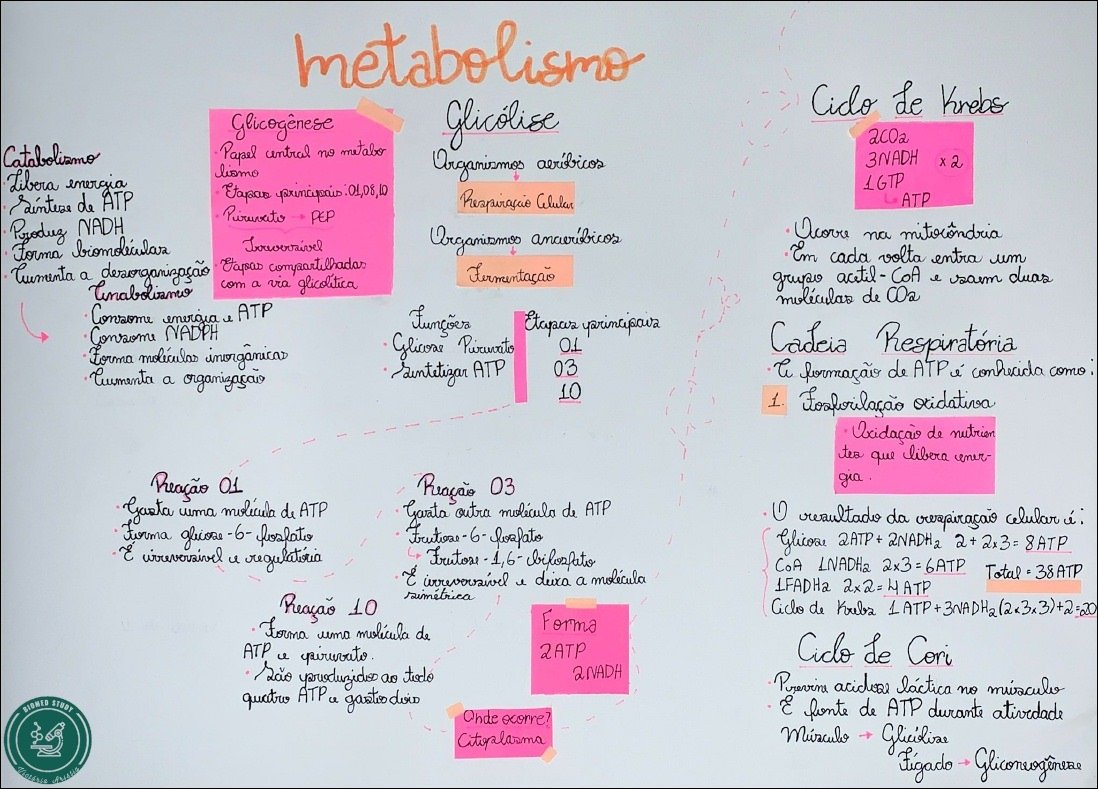 metabolismo
Catabolismo
· Libera energia
· Síntese de ATP
· Produz NADH
· Forma biomoléculas
· Aumenta a desorganização
Anabolismo
· Consome energia e ATP
· Consome NADPH
· Forma moléculas inorgânicas
· Aumenta a organização
Glicogênese
· Papel central no metabo
lismo
· Etapas principais: 01,08,10
· Piruvato → PEP
Irreversível
· Etapas compartilhadas
com a via glicolítica
Glicólise
Organismos aeróbicos
Respiração Celular
Organismos anaeróbicos
Fermentação
Funções
· Glicose Piruvato
· Sintetizar ATP
Etapas principais
01
03
10
Reação 01
· Gasta uma molécula de ATP
· Forma glicose-6-fosfato
· É irreversível e regulatória
Reação 03
· Gasta outra molécula de ATP
· Frutose-6-fosfato
↳ Frutose-1,6-bifosfato
· É irreversível e deixa a molécula
simétrica
Reação 10
· Forma uma molécula de
ATP e piruvato.
· São produzidos ao todo
quatro ATP e gastos dois
Forma
2ATP
2NADH
Onde ocorre?
Citoplasma
Ciclo de Krebs
2CO2
3NADH x2
1GTP
↳ ATP
· Ocorre na mitocôndria
· Em cada volta entra um
grupo acetil-CoA e saem duas
moléculas de CO2
Cadeia Respiratória
· A formação de ATP é conhecida como:
1. Fosforilação oxidativa
· Oxidação de nutrien
tes que libera ener-
gia.
· O resultado da respiração celular é:
· Glicose 2ATP + 2NADH2 2+2x3= 8ATP
· CoA 1NADH2 2x3= 6ATP
· 1FADH2 2x2= 4ATP
Total = 38ATP
· Ciclo de Krebs 1ATP+3NADH2(2x3x3)+2=20
Ciclo de Cori
· Previni acidose láctica no músculo
· É fonte de ATP durante atividade
Músculo → Glicólise
Fígado → Gliconeogênese
BIOMED STUDY